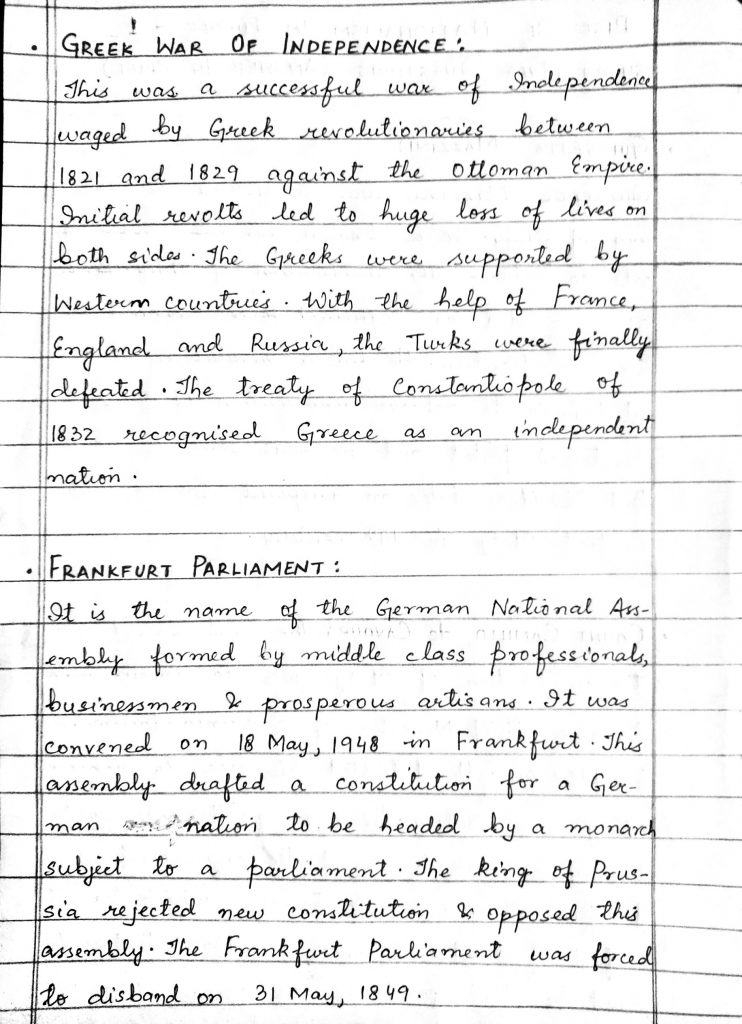 • GREEK WAR OF INDEPENDENCE :
This was a successful war of Independence
waged by Greek revolutionaries between
1821 and 1829 against the Ottoman Empire.
Initial revolts led to huge loss of lives on
both sides. The Greeks were supported by
Western countries. With the help of France,
England and Russia, the Turks were finally
defeated. The treaty of Constantiopole of
1832 recognised Greece as an independent
nation.
• FRANKFURT PARLIAMENT :
It is the name of the German National Ass-
embly formed by middle class professionals,
businessmen & prosperous artisans. It was
convened on 18 May, 1948 in Frankfurt. This
assembly drafted a constitution for a Ger-
man nation to be headed by a monarch
subject to a parliament. The king of Prus-
sia rejected new constitution & opposed this
assembly. The Frankfurt Parliament was forced
to disband on 31 May, 1849.